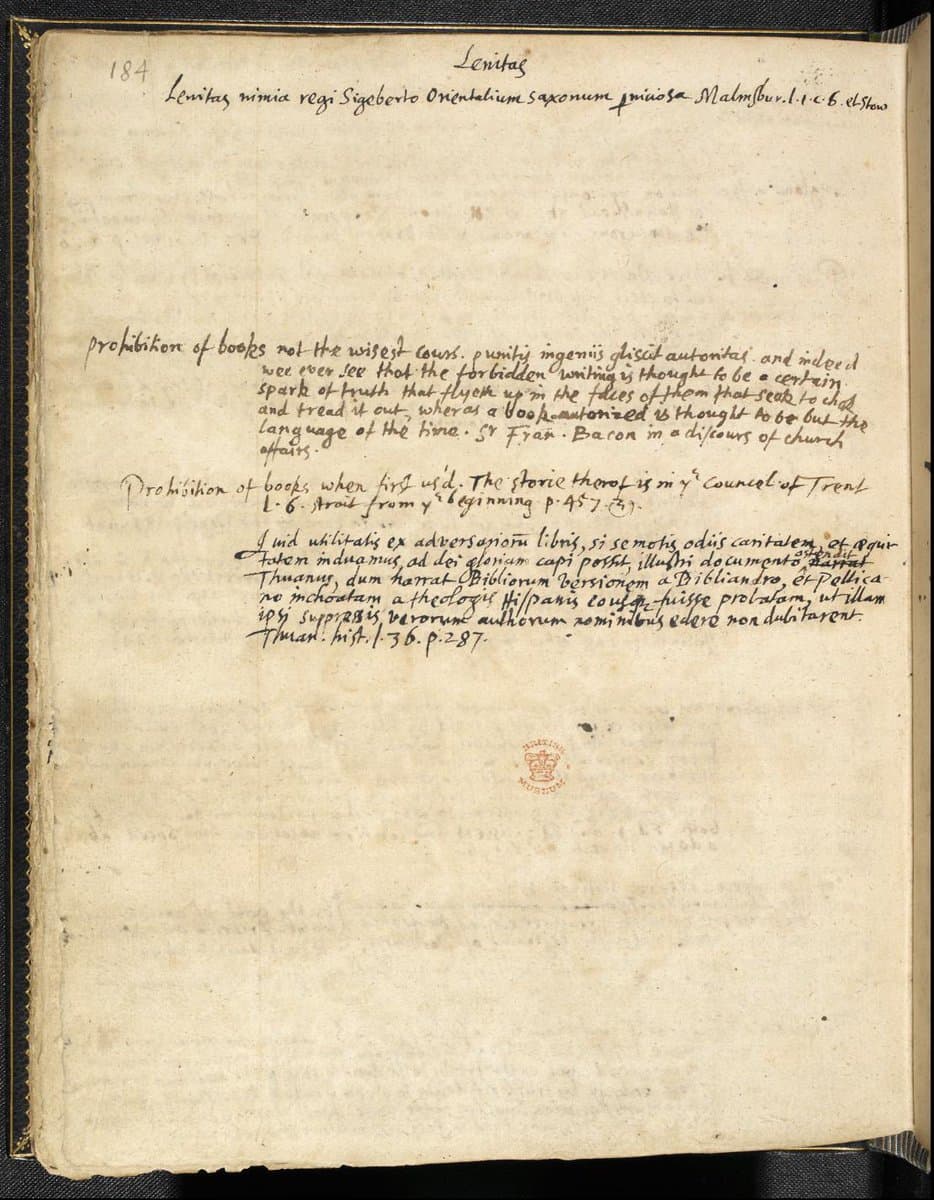 184
Lenitas
Lenitas nimia regi Sigeberto Orientalium Saxonum pniciosa Malmsbur. l. 1. c. 6. et Stow
Prohibition of books not the wisest cours. punitis ingeniis gliscit autoritas. and indeed
wee ever see that the forbidden writing is thought to be a certain
spark of truth that flyeth up in the faces of them that seek to chok
and tread it out, wheras a book autorized is thought to be but the
language of the time. Sr Fran. Bacon in a discours of church
affairs.
Prohibition of books when first us'd. The storie therof is in ye Councel of Trent
l. 6. strait from ye beginning p. 457. &c.
Quid utilitatis ex adversarioru libris, si semotis odiis caritatem, et æqui-
ostendit
tatem induamus, ad dei gloriam capi possit, illustri documento, narrat
Thuanus, dum narrat Bibliorum versionem a Bibliandro, et Pellica-
no inchoatam a theologis Hispanis eousq fuisse probatam, ut illam
ipsi suppressis verorum authorum nominibus edere non dubitarent.
Thuan. hist. l. 36. p. 287.
BRITISH
MUSEUM